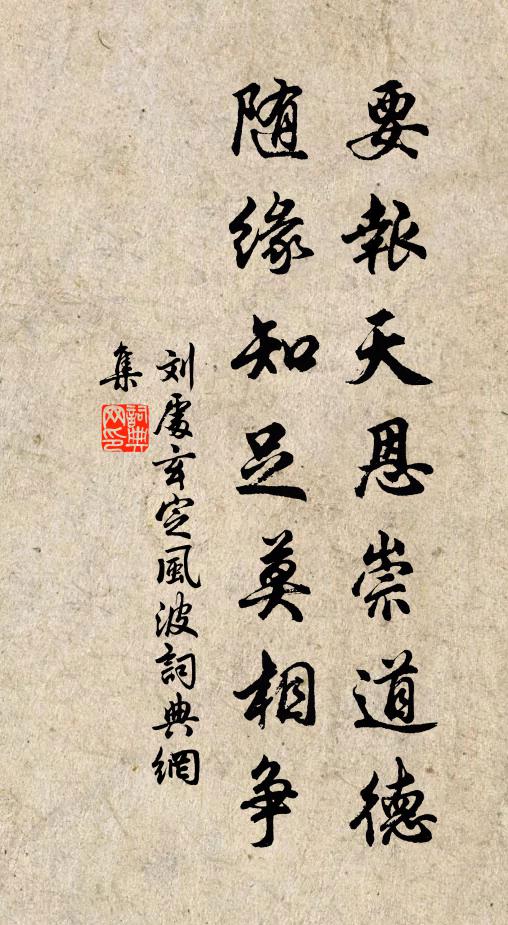 要報天恩崇道德
随緣知足莫相争
刘處玄定風波詞典網
集
詞典网印